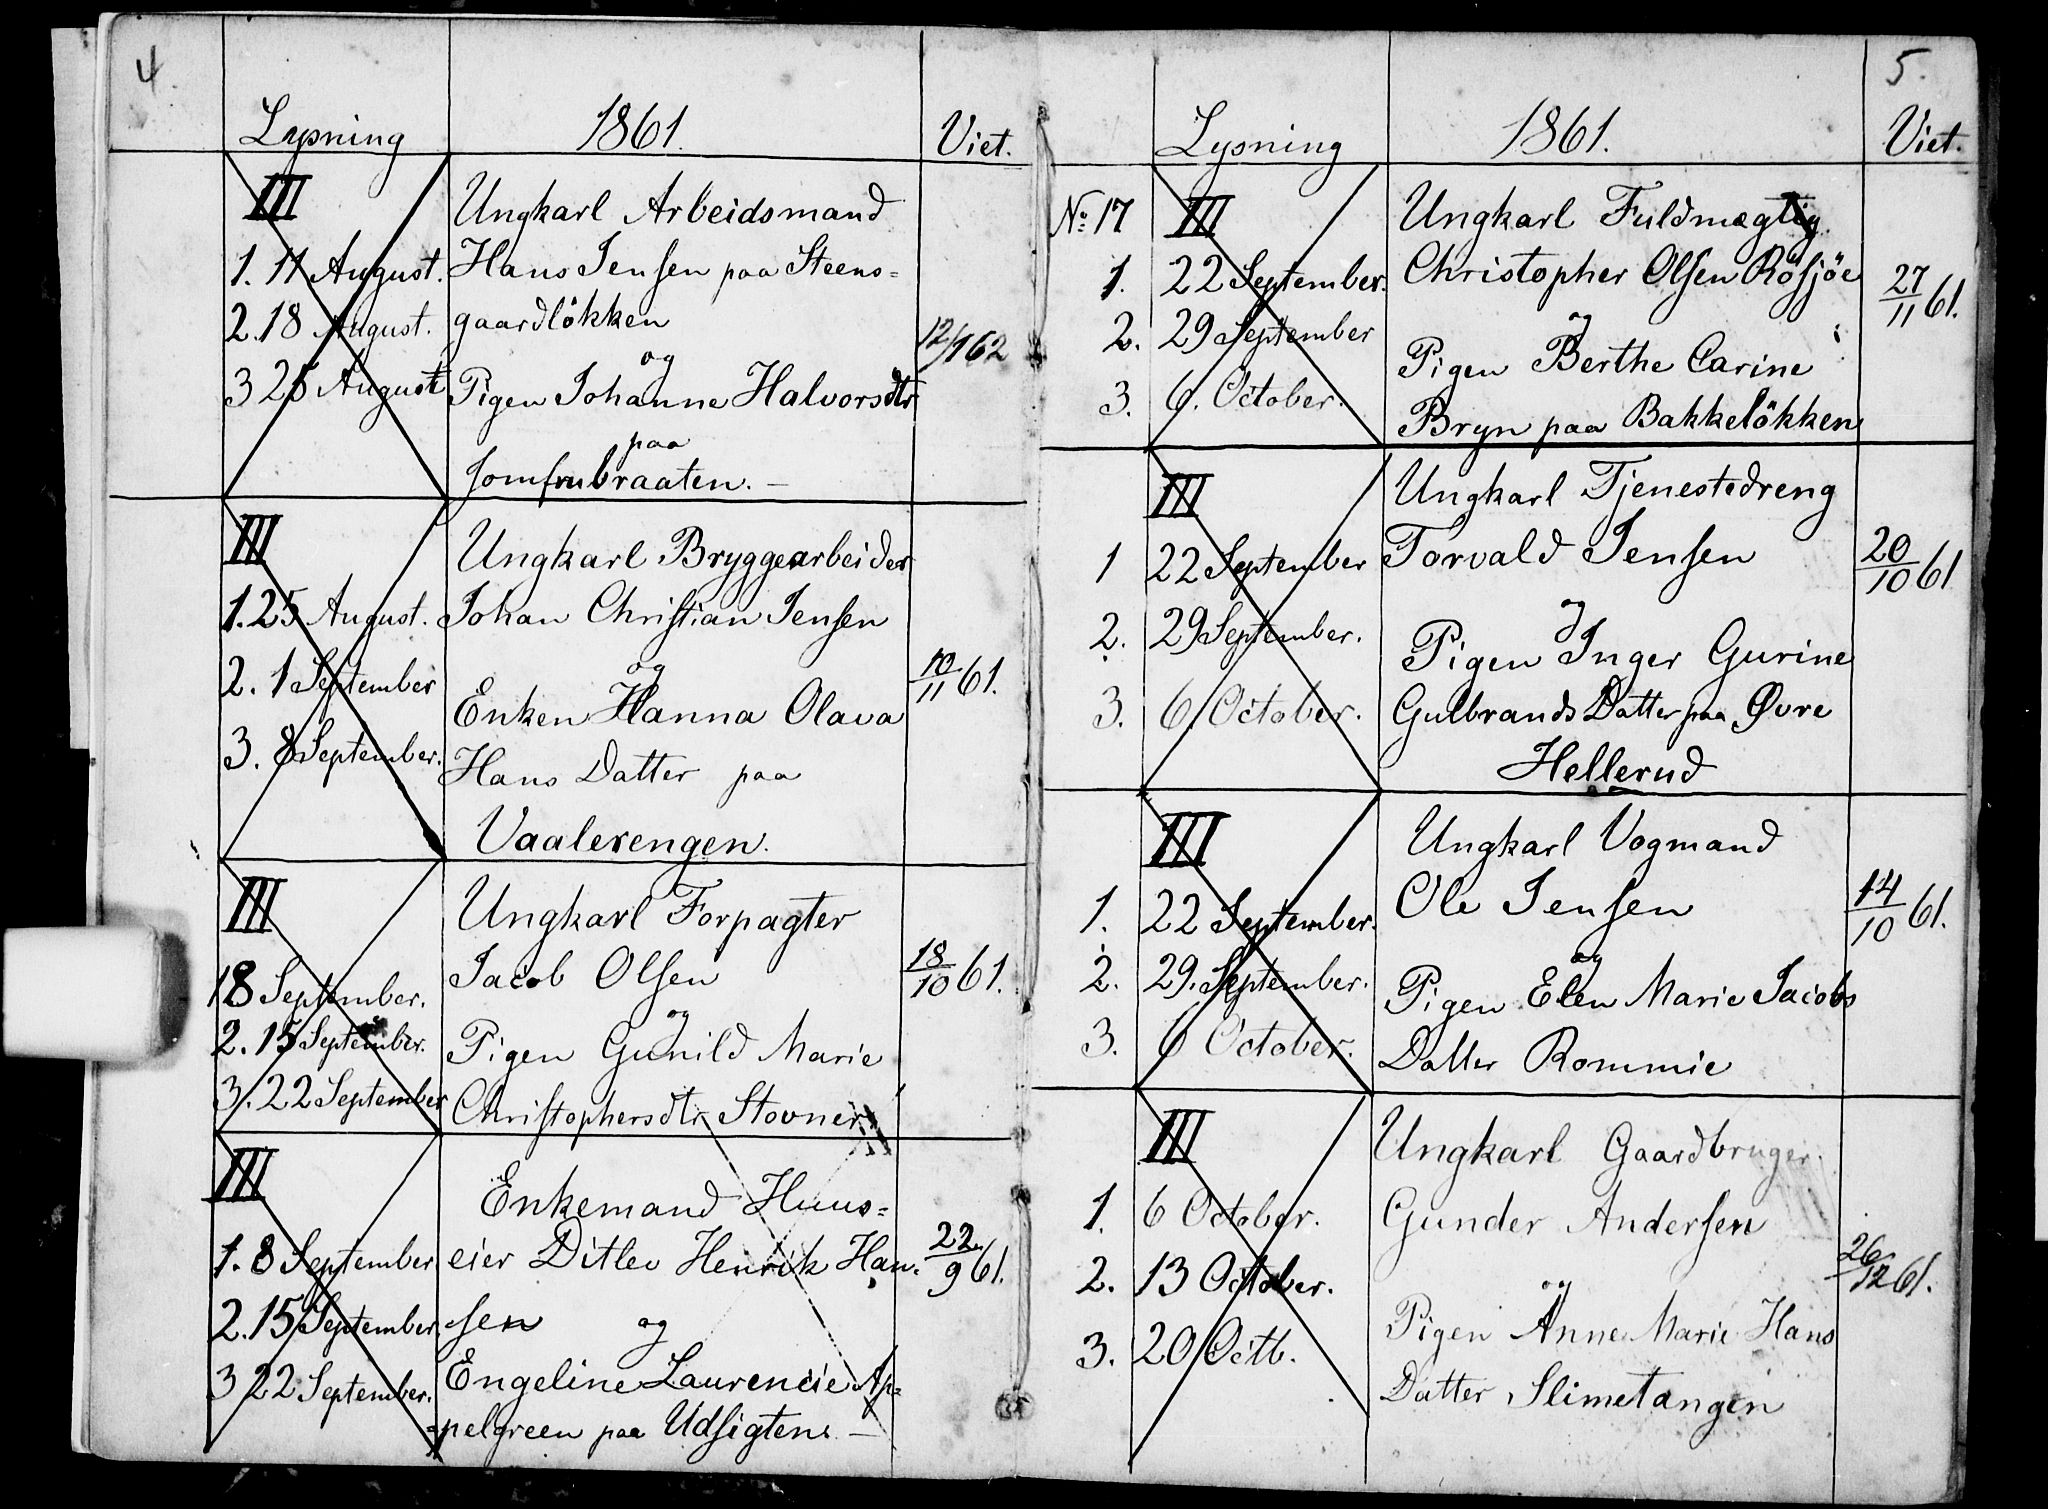 4.
Lysning 1861. Viet.
III Ungkarl Arbeidsmand
1. 11 August. Hans Jensen paa Steens=
2. 18 August. gaardlökken
og 12/1 62
3 25 August Pigen Johanne Halvorsdtr
paa
Jomfrubraaten. —
III Ungkarl Bryggearbeider
1. 25 August. Johan Christian Jensen
og 10/11 61.
2. 1 September Enken Hanna Olava
3. 8 September. Hans Datter paa
Vaalerengen.
III Ungkarl Forpagter
18 September. Jacob Olsen 18/10 61.
og
2. 15 September. Pigen Gunild Marie
3. 22 September Christophersdtr Stovner
III Enkemand Huus=
1. 8 September eier Ditlev Henrik Han= 22/9 61.
2. 15 September. sen og
3 22 September. Engeline Laurencie Ap=
=pelgreen paa Udsigten. —
5.
Lysning 1861. Viet.
No 17 III Ungkarl Fuldmægtig
1. 22 September. Christopher Olsen Rösjöe 27/11 61.
og
2. 29 September Pigen Berthe Carine
3. 6. October. Bryn paa Bakkelökken
III Ungkarl Tjenestedreng
1 22 September Torvald Jensen 20/10 61
og
2. 29 September. Pigen Inger Gurine
3. 6 October. Gulbrands Datter paa Øvre
Hellerud
III Ungkarl Vogmand
1. 22 September. Ole Jensen 14/10 61.
og
2. 29. September. Pigen Elen Marie Jacobs
3. 6 October. Datter Rommie
III Ungkarl Gaardbruger.
1. 6 October. Gunder Andersen
2. 13 October. og 26/12 61.
3. 20 Octb. Pigen Anne Marie Hans
Datter Slimetangen